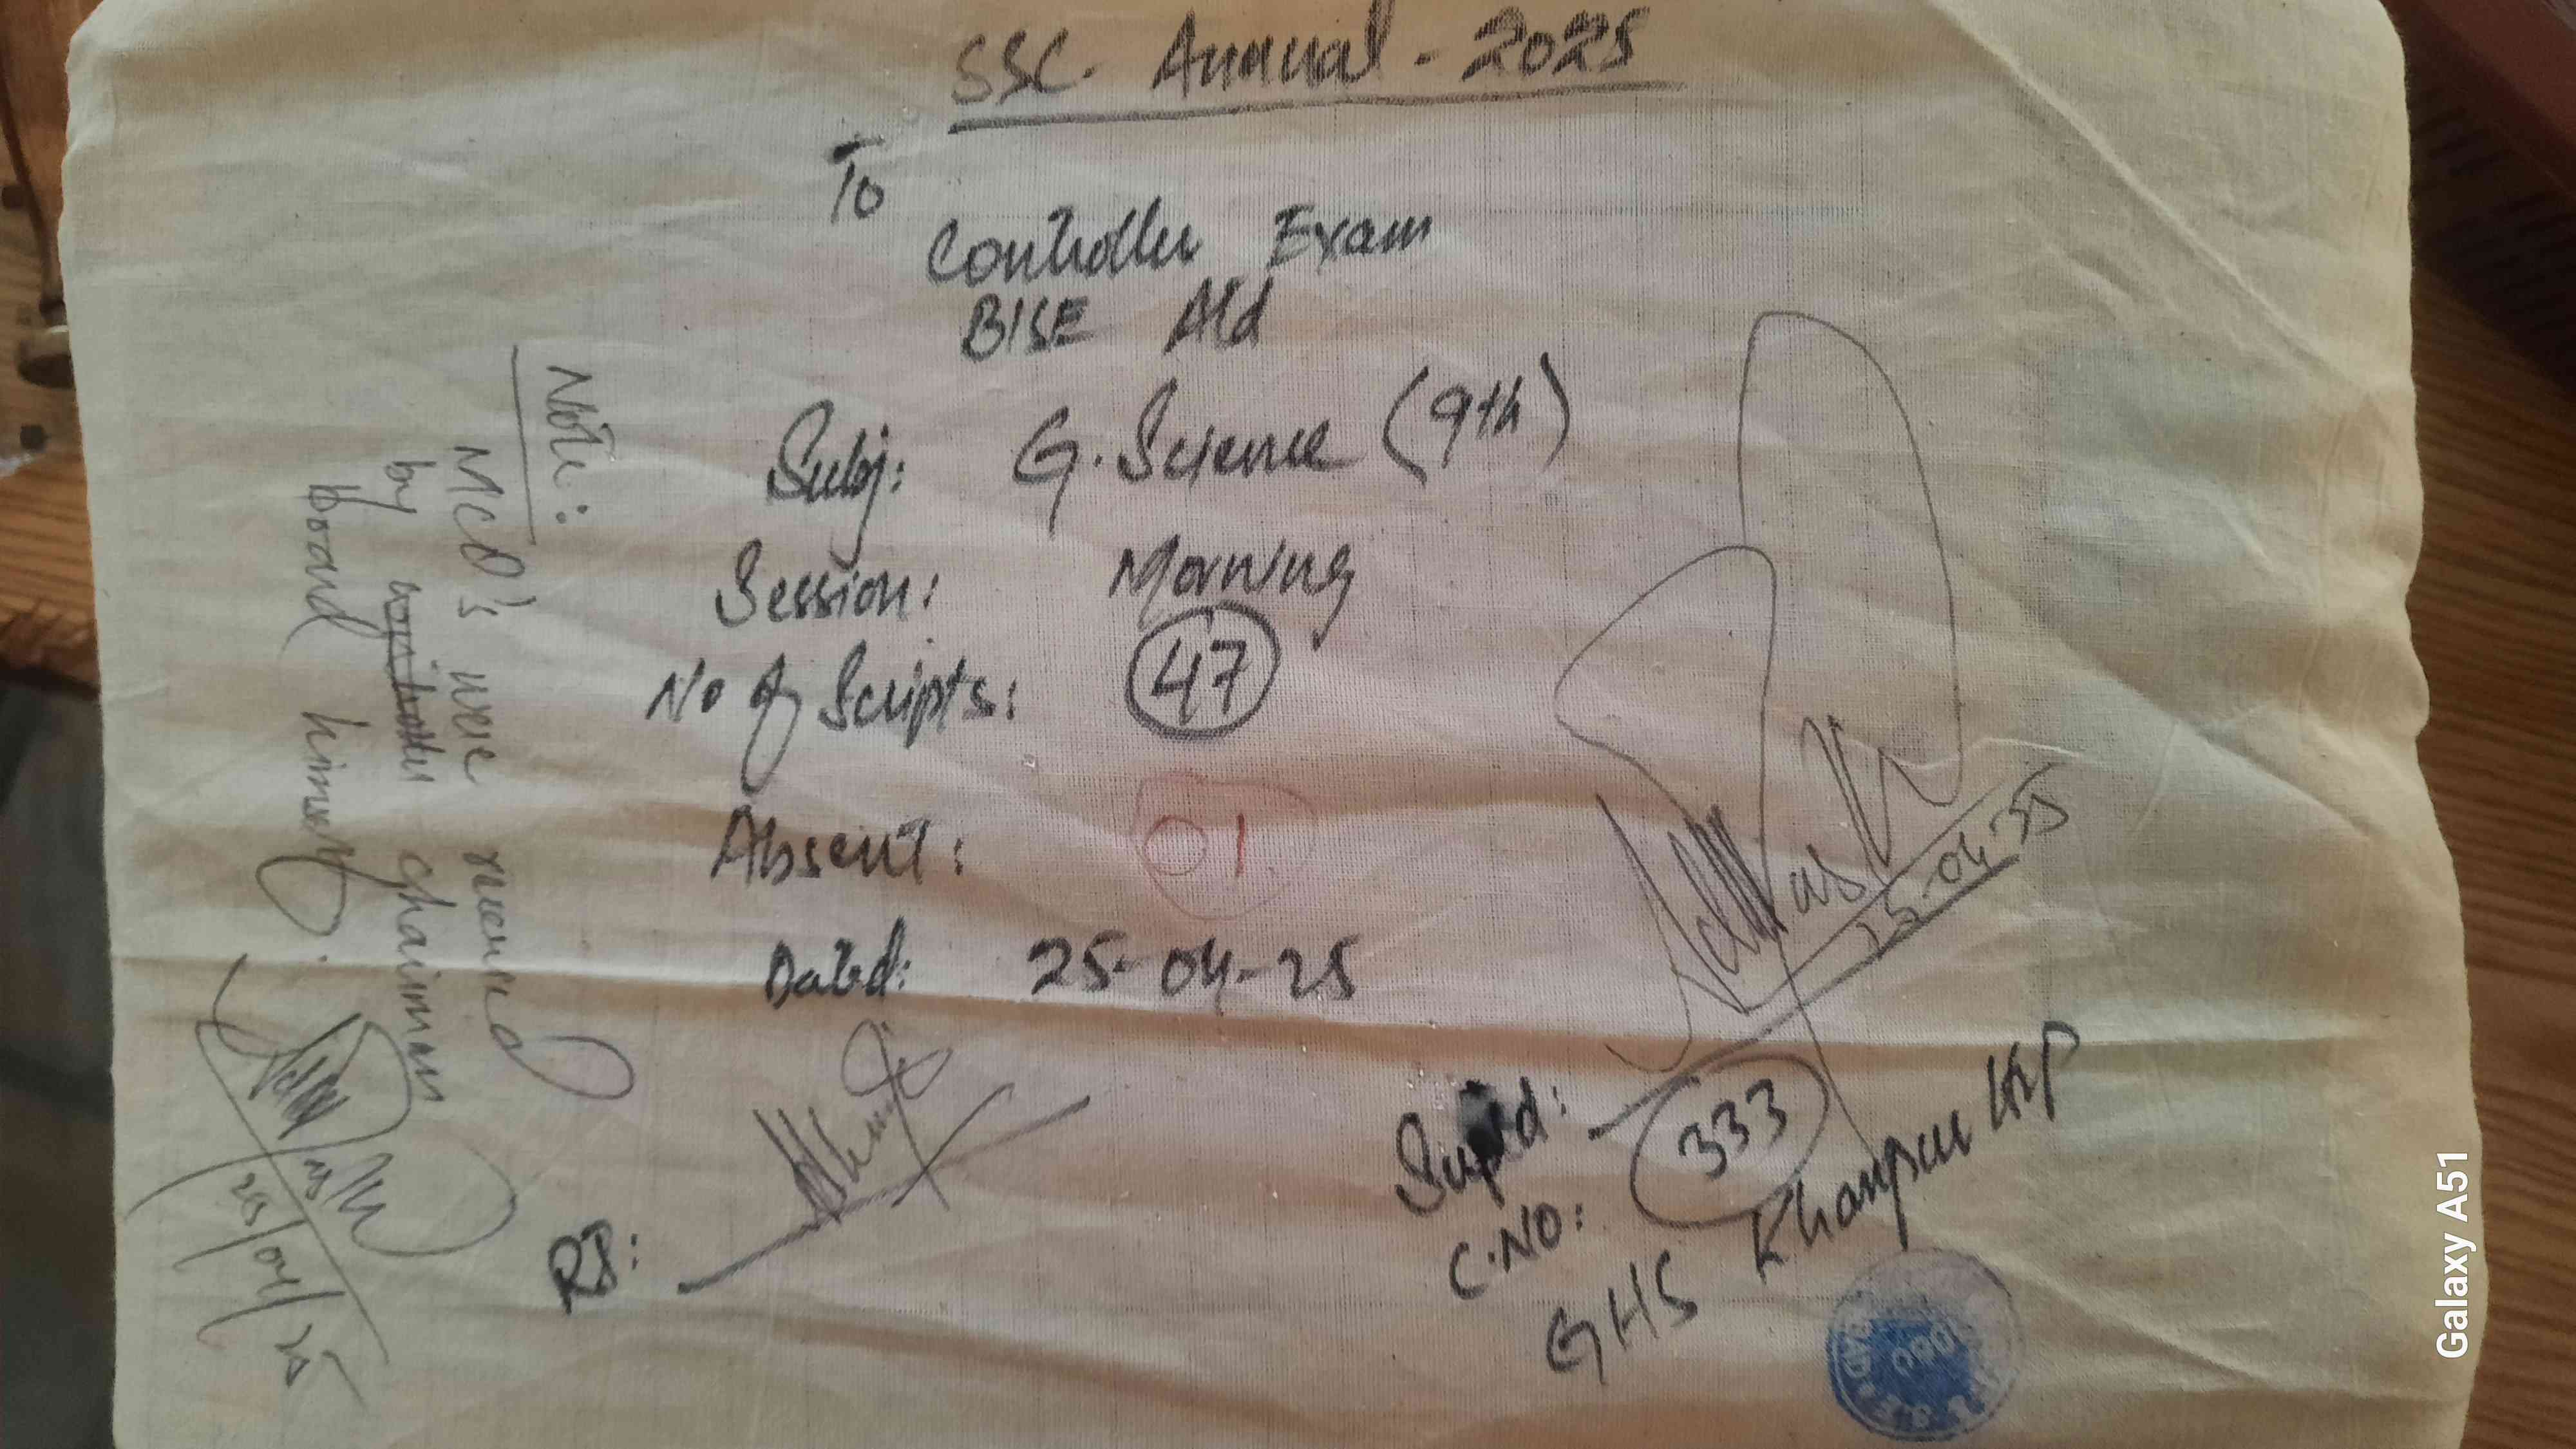 SSC Annual - 2025
To
Controller Exam
BISE Atd
Subj: G. Science (9th)
Session: Morning
No of Scripts: 47
Absent: 01
Dated: 25-04-25
RI:
25-04-25
Suptd:
C.NO: 333
GHS Khanpur HRP
Note:
MCQ's were received
by controller chairman
board himself.
25/04/25
Galaxy A51